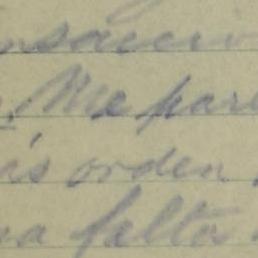 nsaccio
. Me par
ás orden
na falta